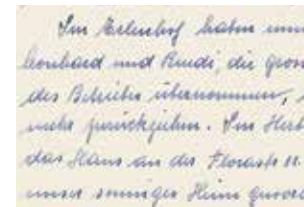 Im Erlenhof haben
Leonhard und Ruedi, die gros
des Betriebes übernommen,
mehr zurückgehen. Im Herb
das Haus an der Florastr. 11.
unser sonniges Heim gewor